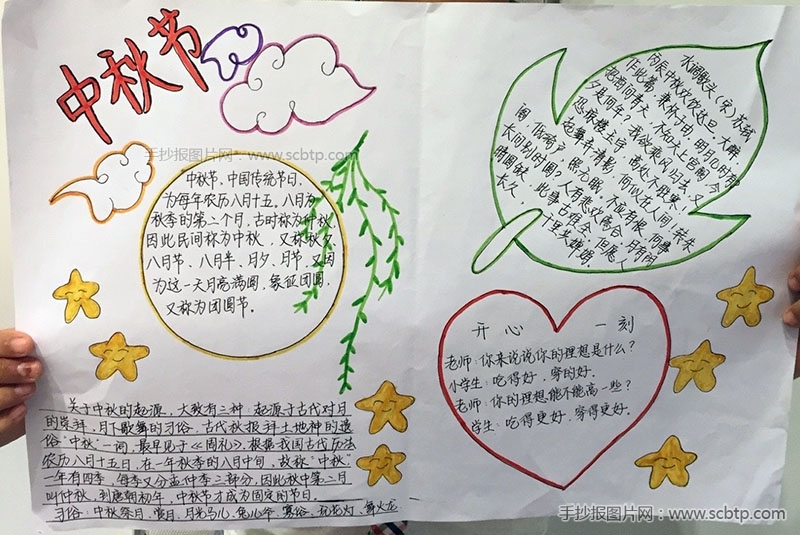 中秋节
手抄报图片网：www.scbtp.com
中秋节，中国传统节日，
为每年农历八月十五。八月为
秋季的第二个月，古时称为仲秋
因此民间称为中秋，又称秋夕、
八月节、八月半、月夕、月节，又因
为这一天月亮满圆，象征团圆，
又称为团圆节。
关于中秋的起源，大致有三种：起源于古代对月
的崇拜、月下歌舞的习俗，古代秋报拜土地神的遗
俗“中秋”一词，最早见于《周礼》，根据我国古代历法
农历八月十五日，在一年秋季的八月中旬，故称“中秋”
一年有四季，每季又分孟仲季三部分，因此秋中第二月
叫仲秋，到唐朝初年，中秋节才成为固定的节日。
习俗：中秋祭月、赏月、月光马儿、兔儿爷、玩花灯、舞火龙
水调歌头（宋）苏轼
丙辰中秋欢饮达旦，大醉，
作此篇，兼怀子由，明月几时有
把酒问青天，不知天上宫阙，今
夕是何年？我欲乘风归去，又
恐琼楼玉宇，高处不胜寒，
起舞弄清影，何似在人间，转朱
阁，低绮户，照无眠，不应有恨，何事
长向别时圆？人有悲欢离合，月有阴
晴圆缺，此事古难全，但愿人
长久，千里共婵娟。
开心一刻
老师：你来说说你的理想是什么？
小学生：吃得好，穿的好。
老师：你的理想能不能高一些？
学生：吃得更好，穿得更好。
手抄报图片网：www.scbtp.com